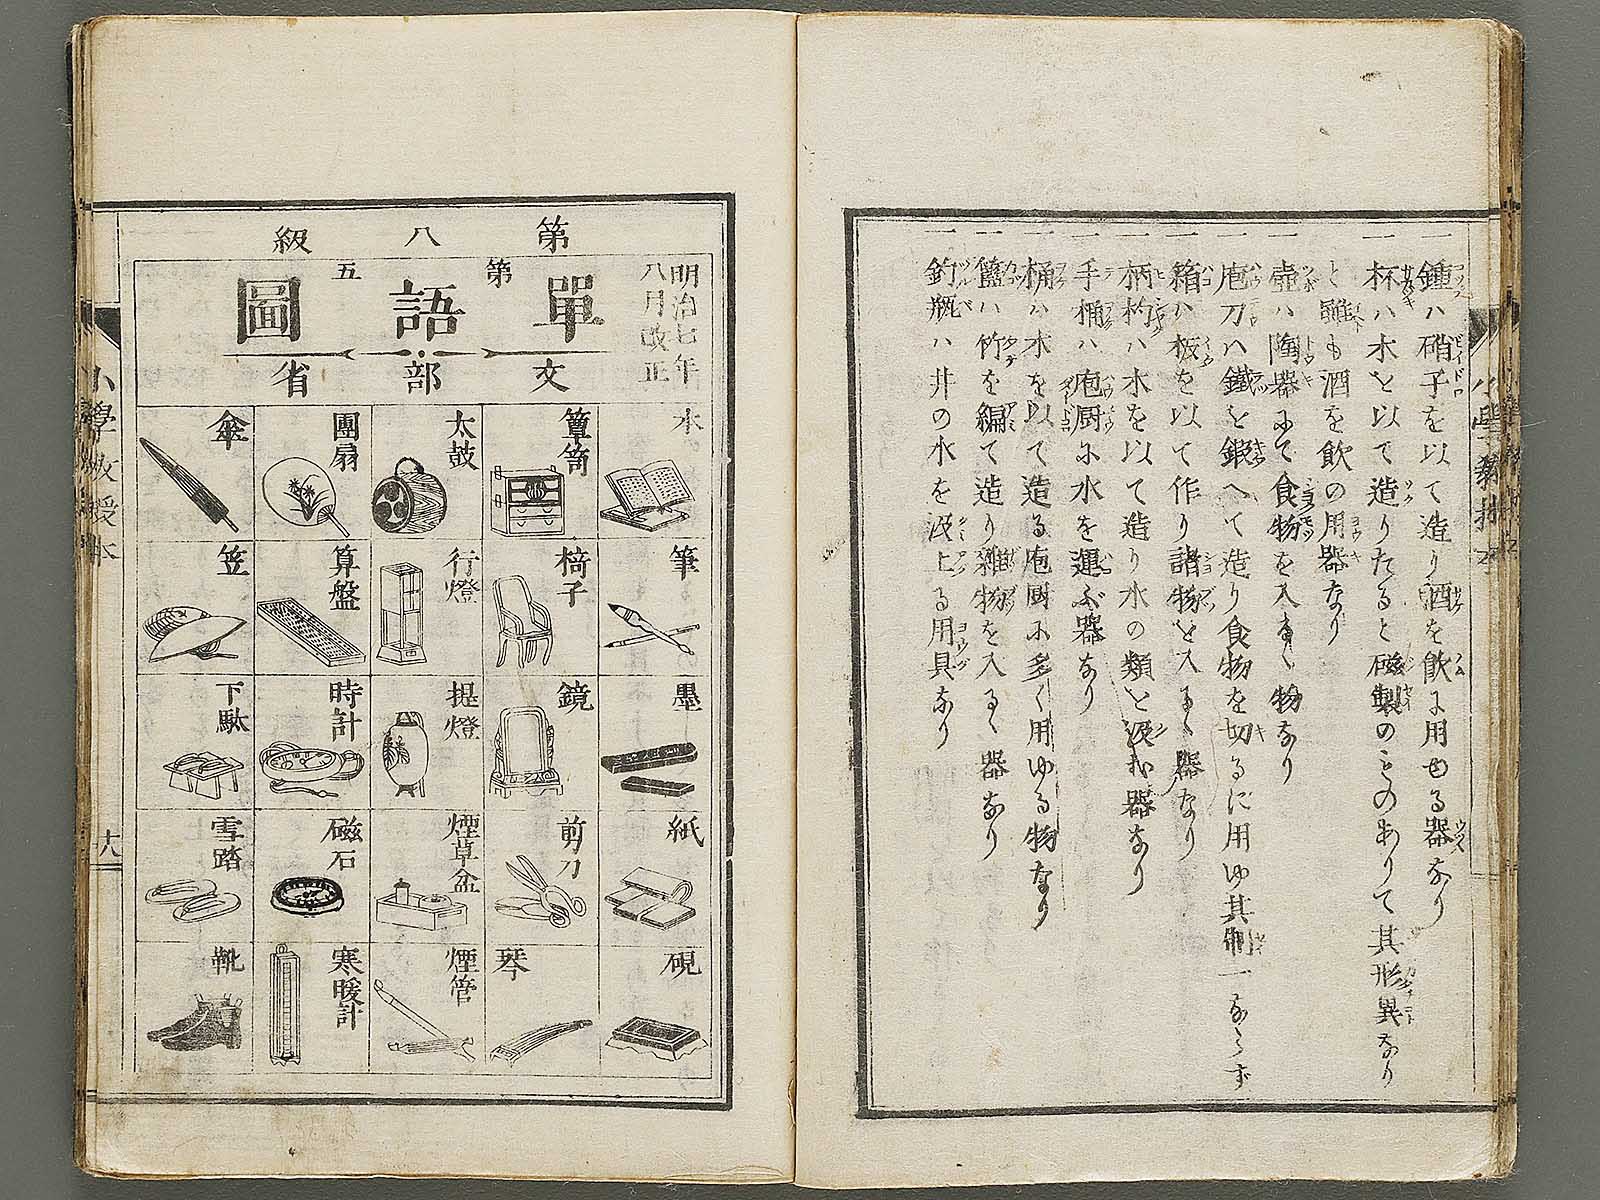 一鍾ハ硝子を以て造り酒を飲に用ゆる器なり
一杯ハ木を以て造りたると磁製のものありて其形異なり
と雖も酒を飲の用器なり
一壺ハ陶器にて食物を入るゝ物なり
一庖刀ハ鐵を鍛へて造り食物を切るに用ゆ其制一ならず
一箱ハ板を以て作り諸物を入るゝ器なり
一柄杓ハ木を以て造り水の類を汲む器なり
一手桶ハ庖厨に水を運ぶ器なり
一桶ハ木を以て造る庖厨に多く用ゆる物なり
一籃ハ竹を編て造り雑物を入るゝ器なり
一釣瓶ハ井の水を汲上る用具なり
第八級
明治七年
八月改正
第五
單語圖
文部省
本
筆
墨
紙
硯
簞笥
椅子
鏡
剪刀
琴
太鼓
行燈
提燈
煙草盆
煙管
團扇
算盤
時計
磁石
寒暖計
傘
笠
下駄
雪踏
靴
小學教授本
十八